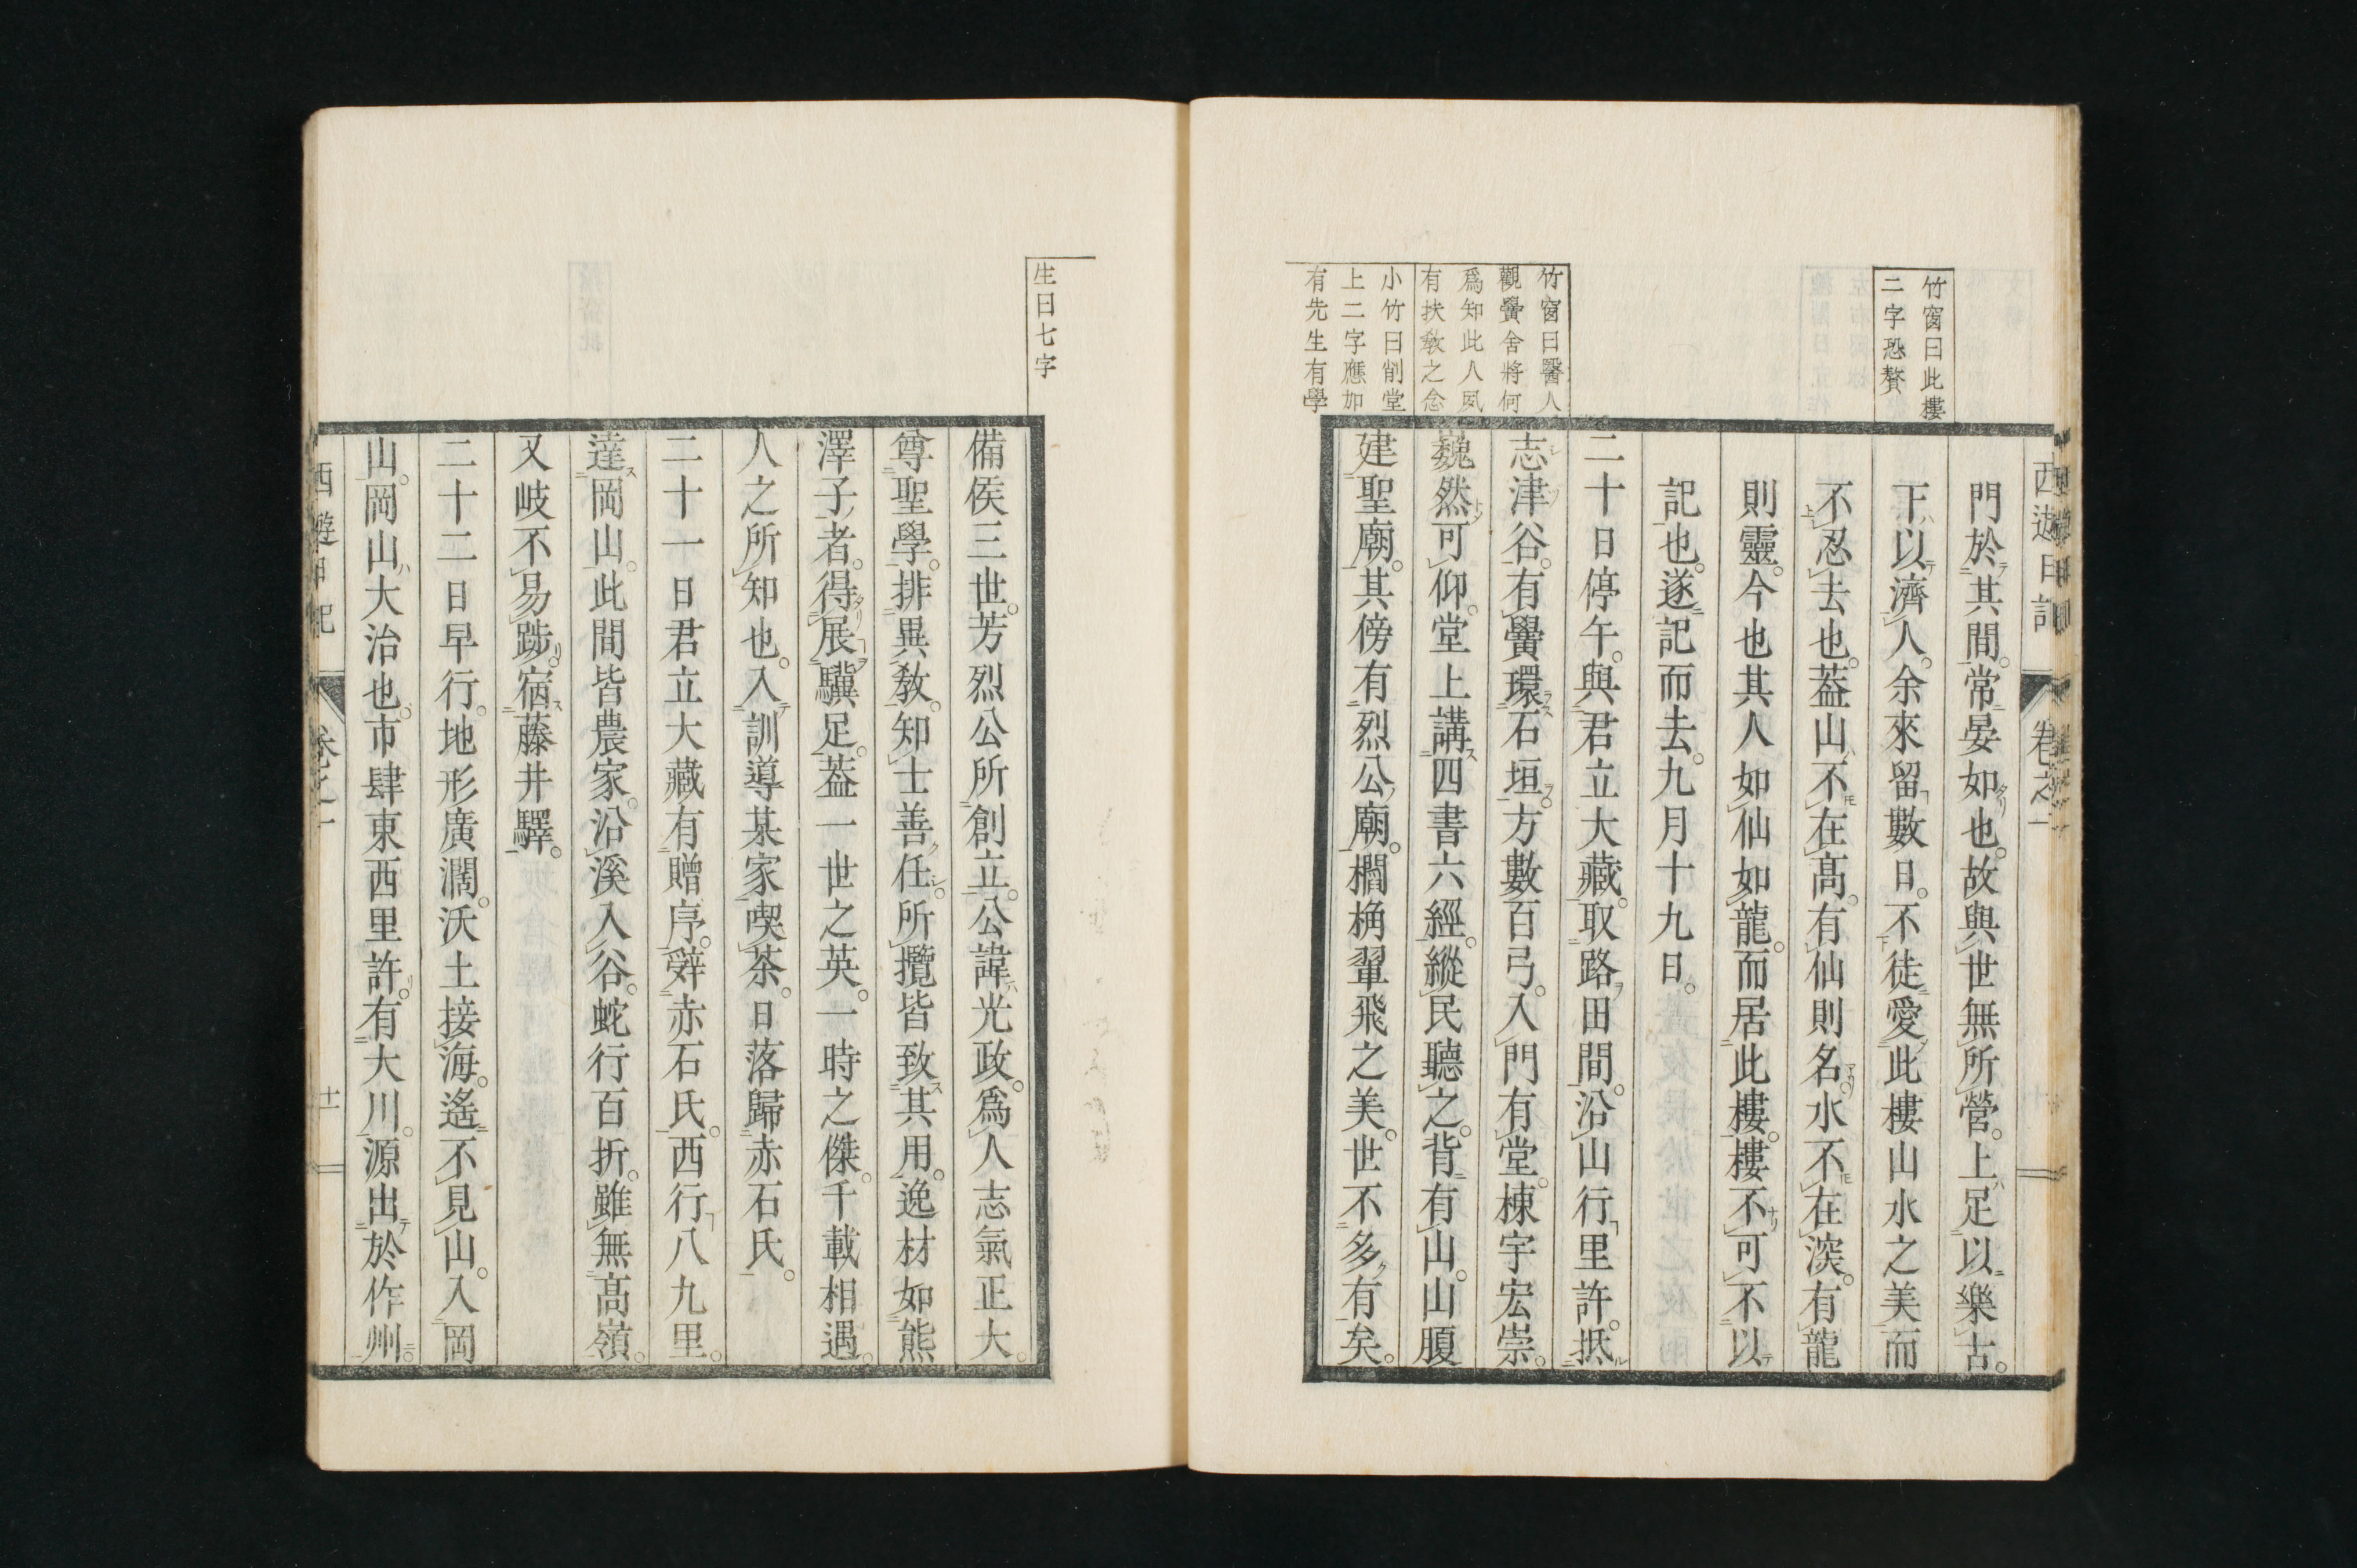 西遊日記
卷之一
竹窗曰此樓
二字恐贅
門於其間。常晏如也。故與世無所營。上足以樂古。
下以濟人。余來留數日。不徒愛此樓山水之美而
不忍去也。葢山不在高。有仙則名。水不在深。有龍
則靈。今也其人如仙如龍。而居此樓。樓不可不以
記也。遂記而去。九月十九日。
竹窗曰醫人
觀黌舍將何
爲知此人夙
有扶敎之念
小竹曰削堂
上二字應加
有先生有學
二十日停午。與君立大藏。取路田間。沿山行里許。抵
志津谷。有黌環石垣。方數百弓。入門有堂。棟宇宏崇。
巍然可仰。堂上講四書六經。縱民聽之。背有山。山腹
建聖廟。其傍有烈公廟。櫩桷翬飛之美。世不多有矣。
生日七字
備侯三世。芳烈公所創立。公諱光政。爲人志氣正大。
尊聖學。排異敎。知士善任。所攬皆致其用。逸材如熊
澤子者。得展驥足。葢一世之英。一時之傑。千載相遇。
人之所知也。入訓導某家喫茶。日落歸赤石氏。
二十一日君立大藏有贈序。辭赤石氏。西行八九里。
達岡山。此間皆農家。沿溪入谷。蛇行百折。雖無高嶺。
又岐不易踄。宿藤井驛。
二十二日早行。地形廣濶。沃土接海。遙不見山。入岡
山。岡山大治也。市肆東西里許。有大川。源出於作州。
西遊日記
卷之一
十一